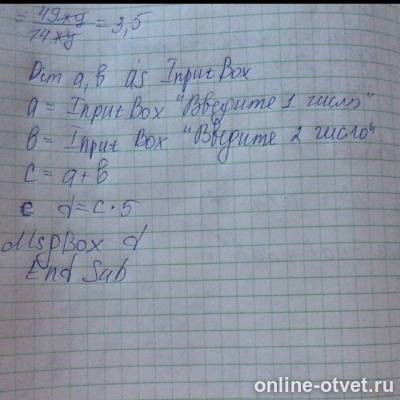 = 49xy / 14xy = 3,5
Dim a, b as InputBox
a = InputBox "Введите 1 число"
b = Input Box "Введите 2 число"
c = a+b
c d = c · 5
MsgBox d
End Sub
online-otvet.ru